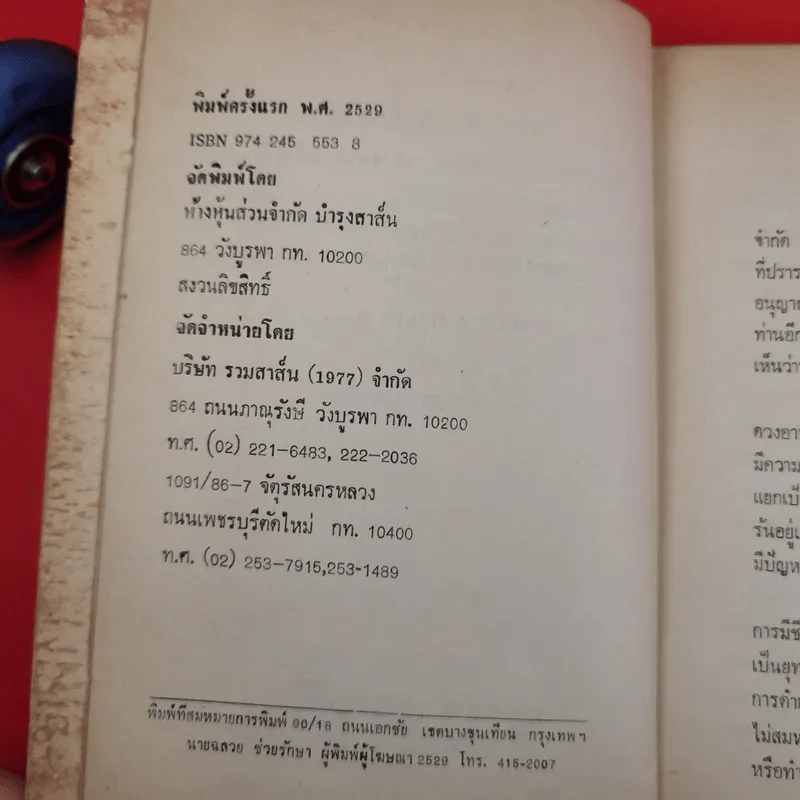 พิมพ์ครั้งแรก พ.ศ. 2529
ISBN 974 245 553 8
จัดพิมพ์โดย
ห้างหุ้นส่วนจำกัด บำรุงสาส์น
864 วังบูรพา กท. 10200
สงวนลิขสิทธิ์
จัดจำหน่ายโดย
บริษัท รวมสาส์น (1977) จำกัด
864 ถนนภาณุรังษี วังบูรพา กท. 10200
ท.ศ. (02) 221-6483, 222-2036
1091/86-7 จัตุรัสนครหลวง
ถนนเพชรบุรีตัดใหม่ กท. 10400
ท.ศ. (02) 253-7915,253-1489
พิมพ์ที่สมหมายการพิมพ์ 90/18 ถนนเอกชัย เขตบางขุนเทียน กรุงเทพฯ
นายฉลวย ช่วยรักษา ผู้พิมพ์ผู้โฆษณา 2529 โทร. 415-2007
จำกัด
ที่ปราร
อนุญา
ท่านอีก
เห็นว่า
ดวงอา
มีความ
แยกเป็
รันอยู่เ
มีปัญห
การมีชี
เป็นยุท
การดำเ
ไม่สมห
หรือทำ